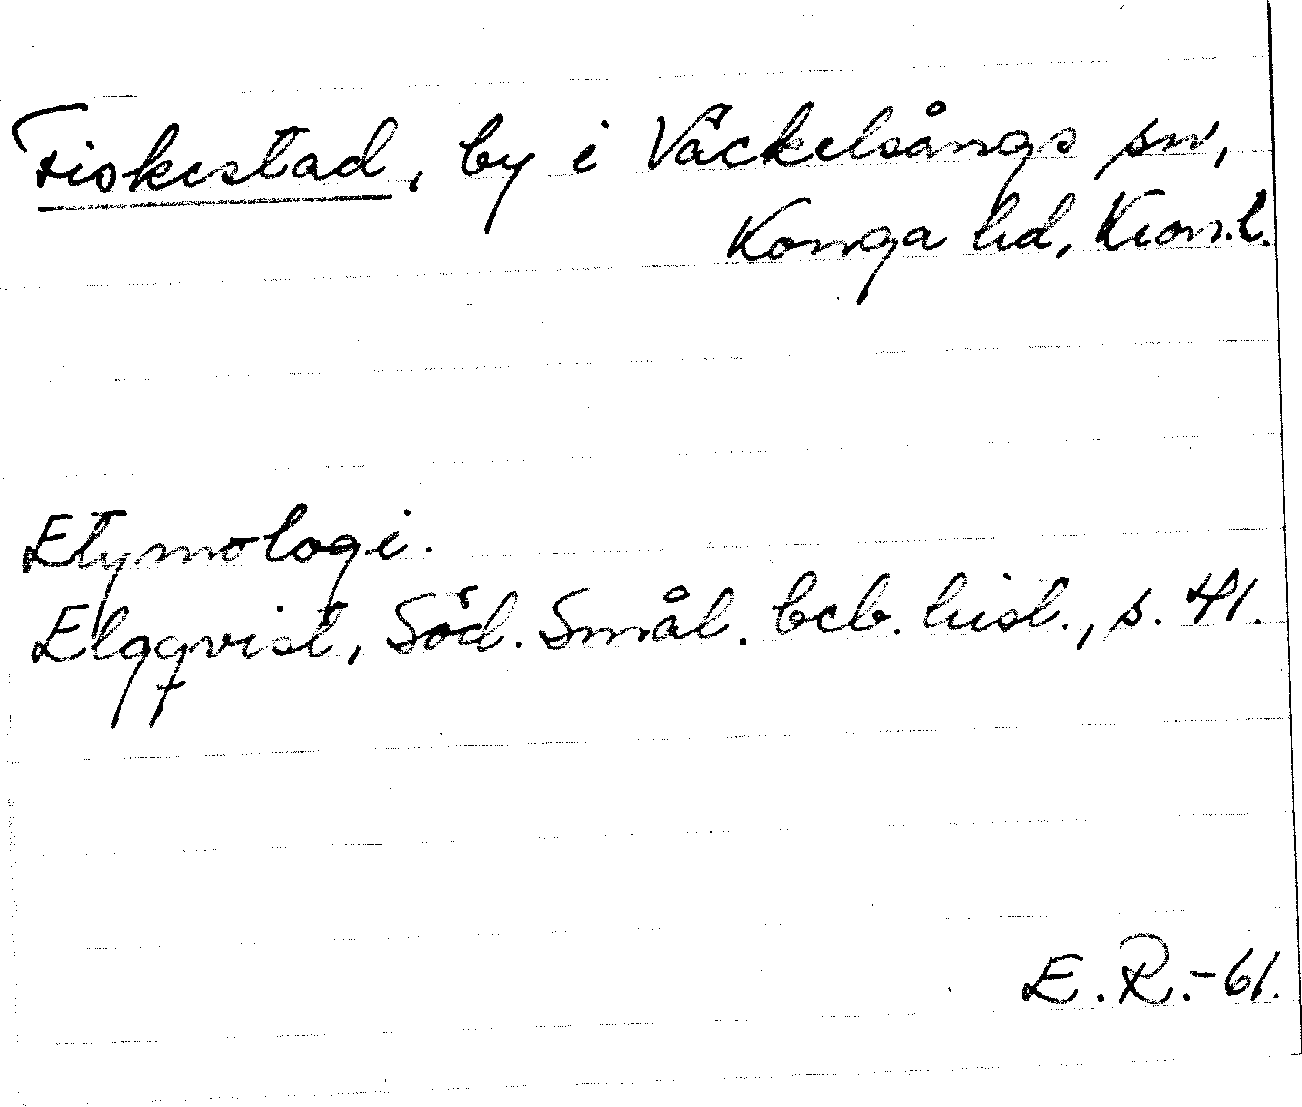 Fiskestad, by i Väckelsångs sn,
Konga hd, Kron.l.
Etymologi.
Elgqvist, Söd. Smål. beb. hist., s. 41.
E. R.-61.